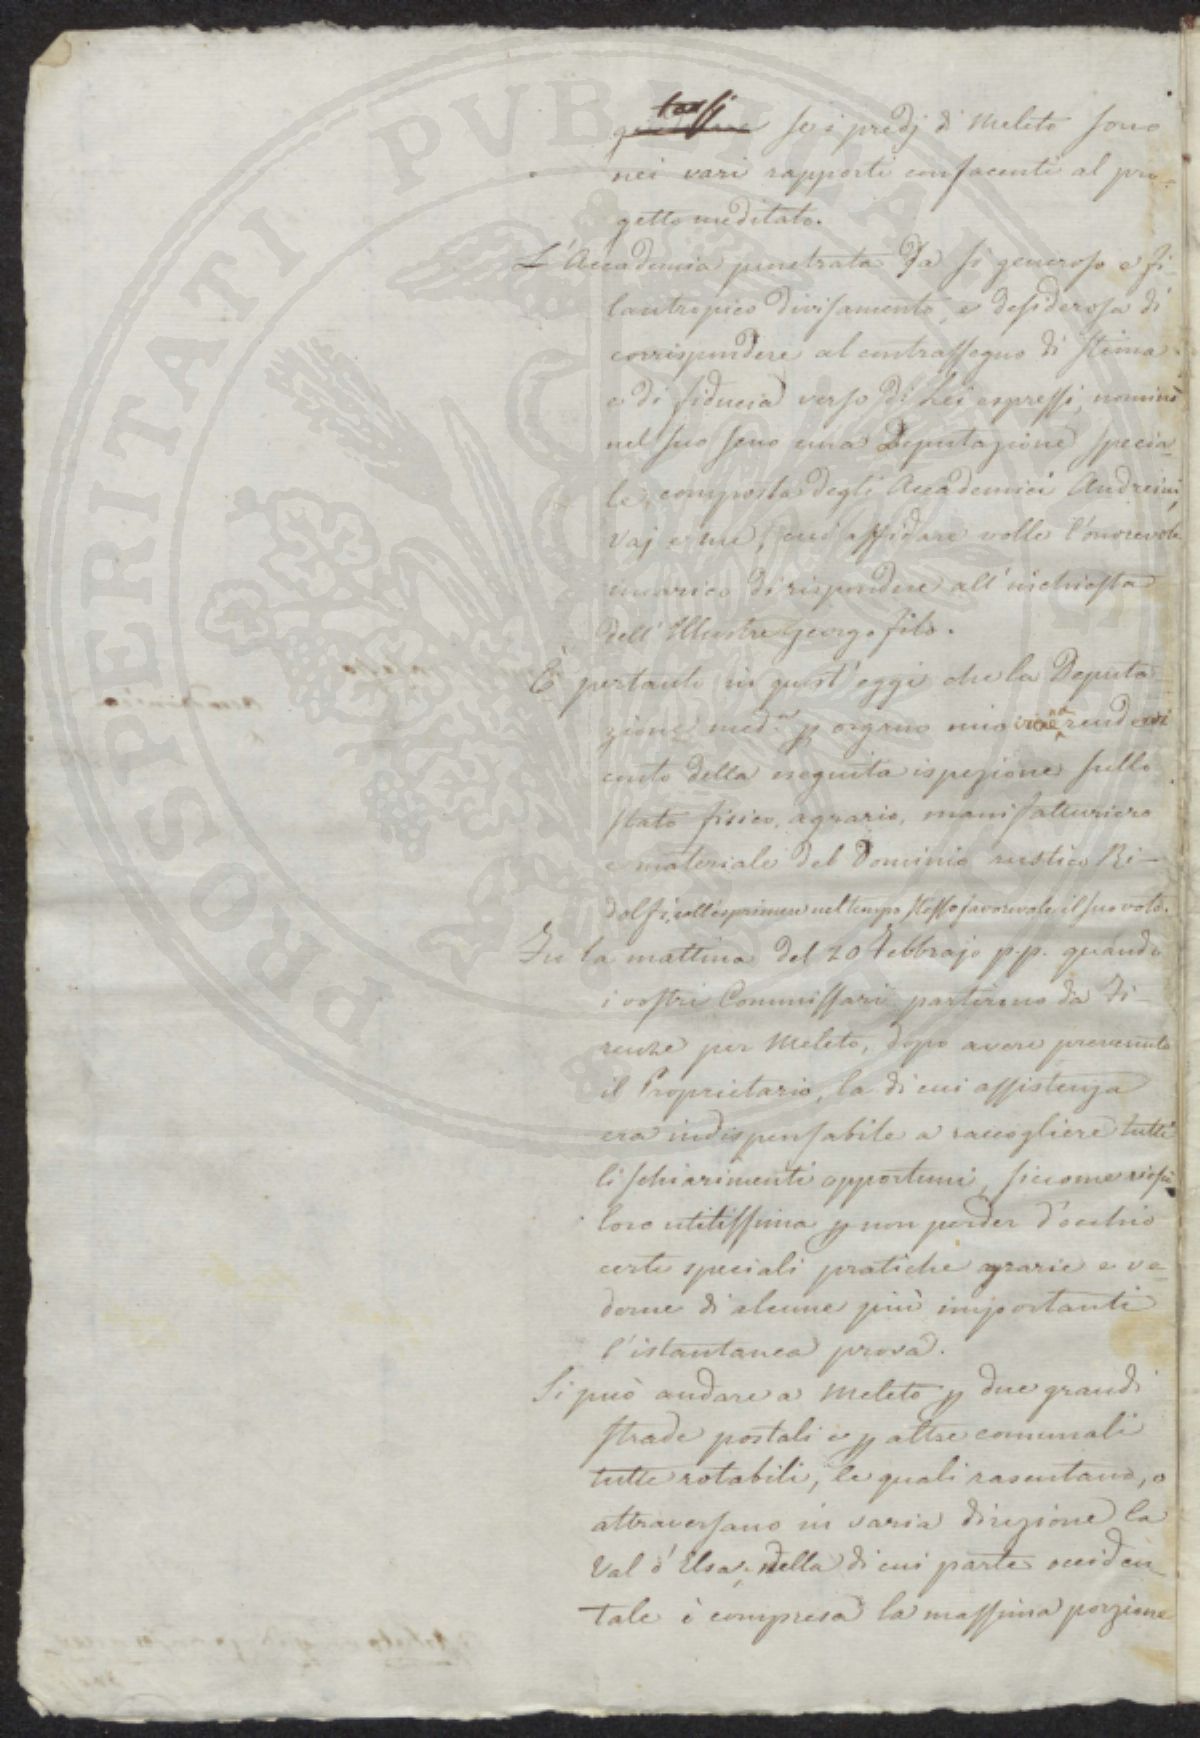 se i predj di Meleto sono
nei vari rapporti confacenti al pro-
getto meditato.
L'Accademia penetrata da sì generoso e fi-
lantropico divisamento, e desiderosa di
corrispondere al contrassegno di stima
e di fiducia verso di Lei espressi, nominò
nel suo seno una Deputazione specia-
le, composta degli Accademici Andreini,
Vaj e me, cui affidare volle l'onorevole
incarico di rispondere all'inchiesta
dell'Illustre Georgofilo.
È pertanto in quest'oggi che la Deputa
zione med.a p organo mio viene a rendervi
conto della eseguita ispezione sullo
stato fisico, agrario, manifatturiero
e materiale del Dominio rustico Ri-
dolfi, coll'esprimere nel tempo stesso favorevole il suo voto.
Fu la mattina del 20 Febbrajo p.p. quando
i vostri Commissari partirono da Fi-
renze per Meleto, dopo avere prevenuto
il Proprietario, la di cui assistenza
era indispensabile a raccogliere tutti
li schiarimenti opportuni, siccome riescì
loro utilissima p non perder d'occhio
certe speciali pratiche agrarie e ve-
derne di alcune più importanti
l'istantanea prova.
Si può andare a Meleto p due grandi
strade postali e p altre comunali
tutte rotabili, le quali rasentano, o
attraversano in varia direzione la
Val d'Elsa, nella di cui parte occiden-
tale è compresa la massima porzione
PROSPERITATI PVBLICAE